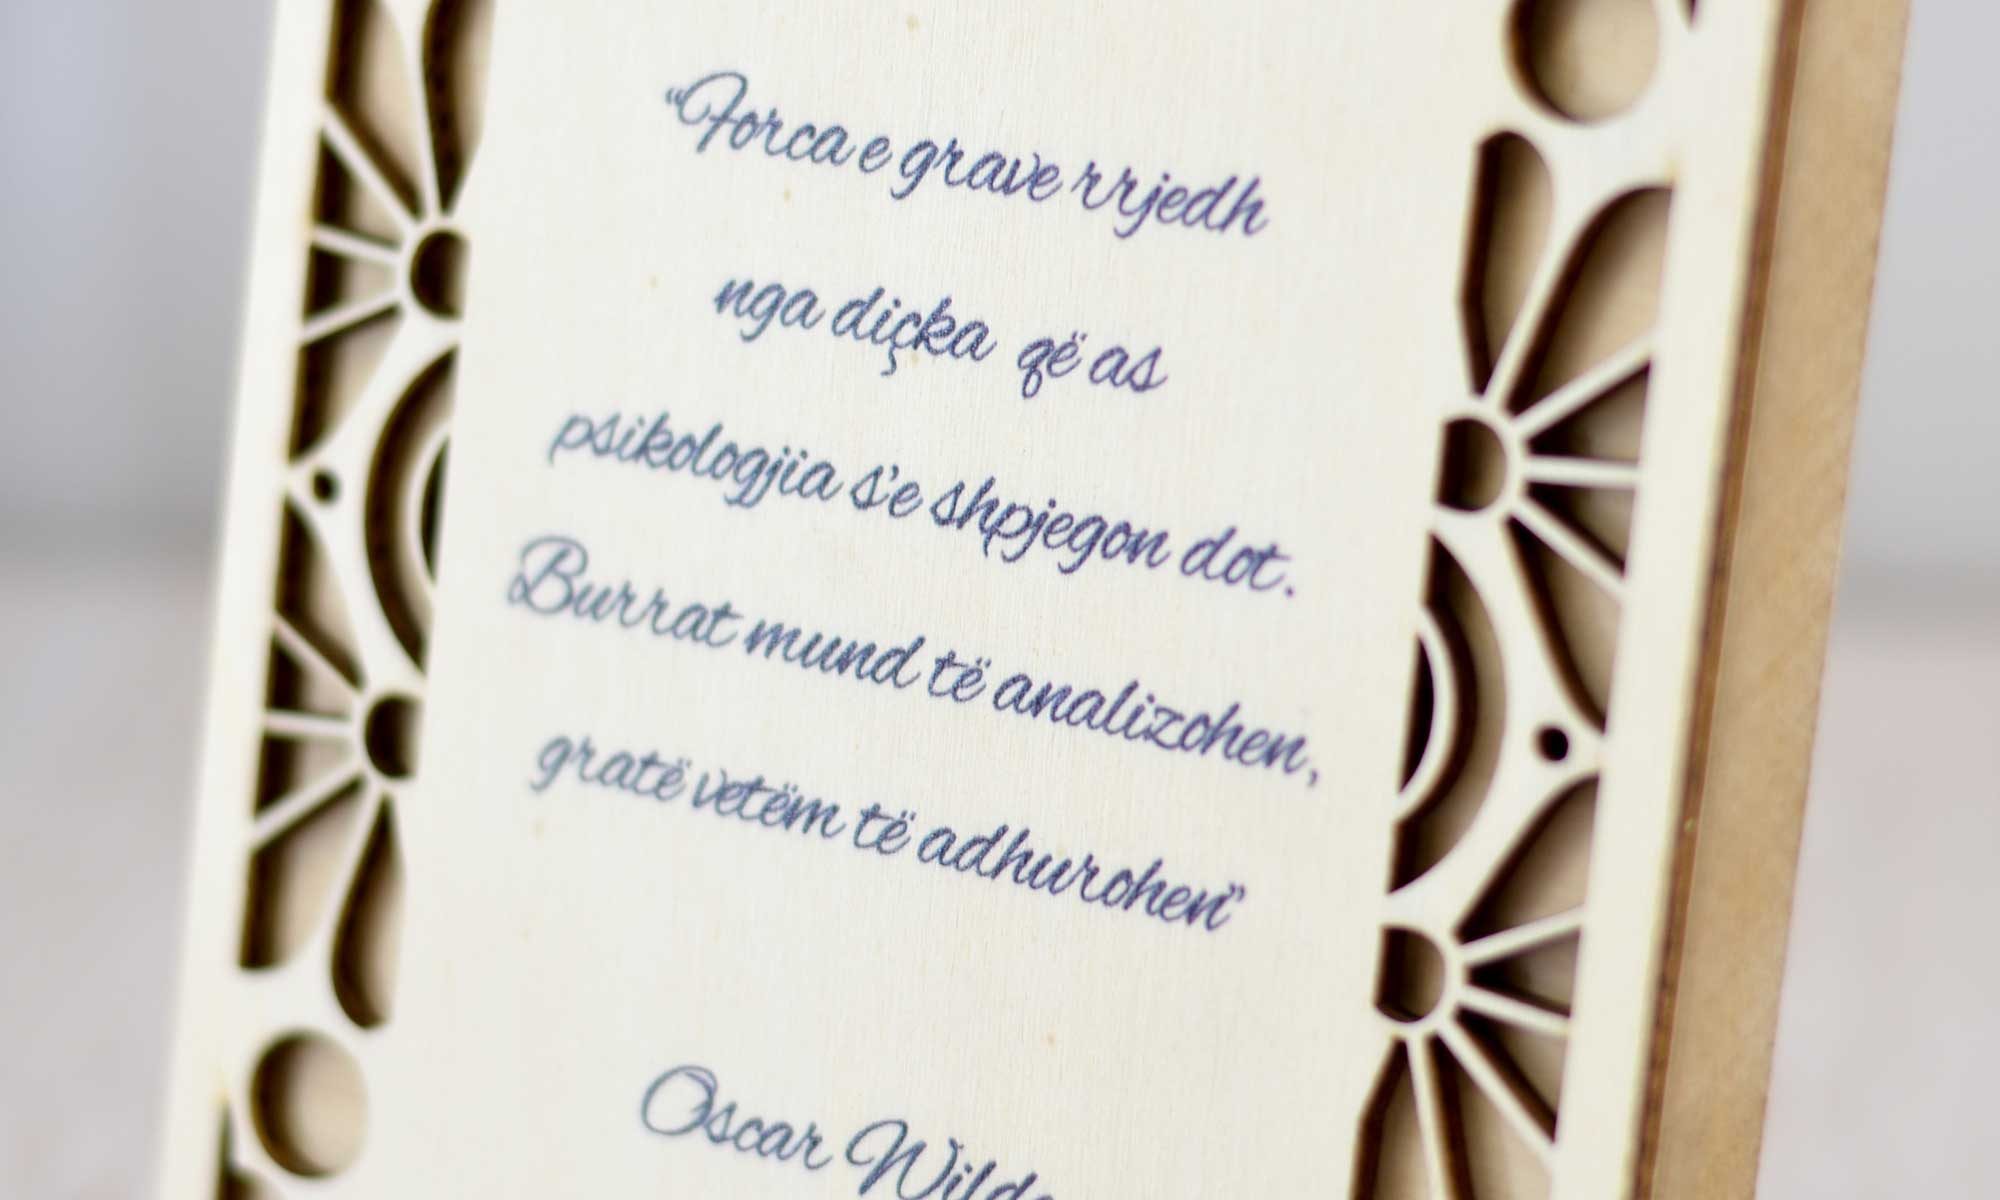 “Forca e grave rrjedh
nga diçka që as
psikologjia s'e shpjegon dot.
Burrat mund të analizohen,
gratë vetëm të adhurohen”
Oscar Wilde